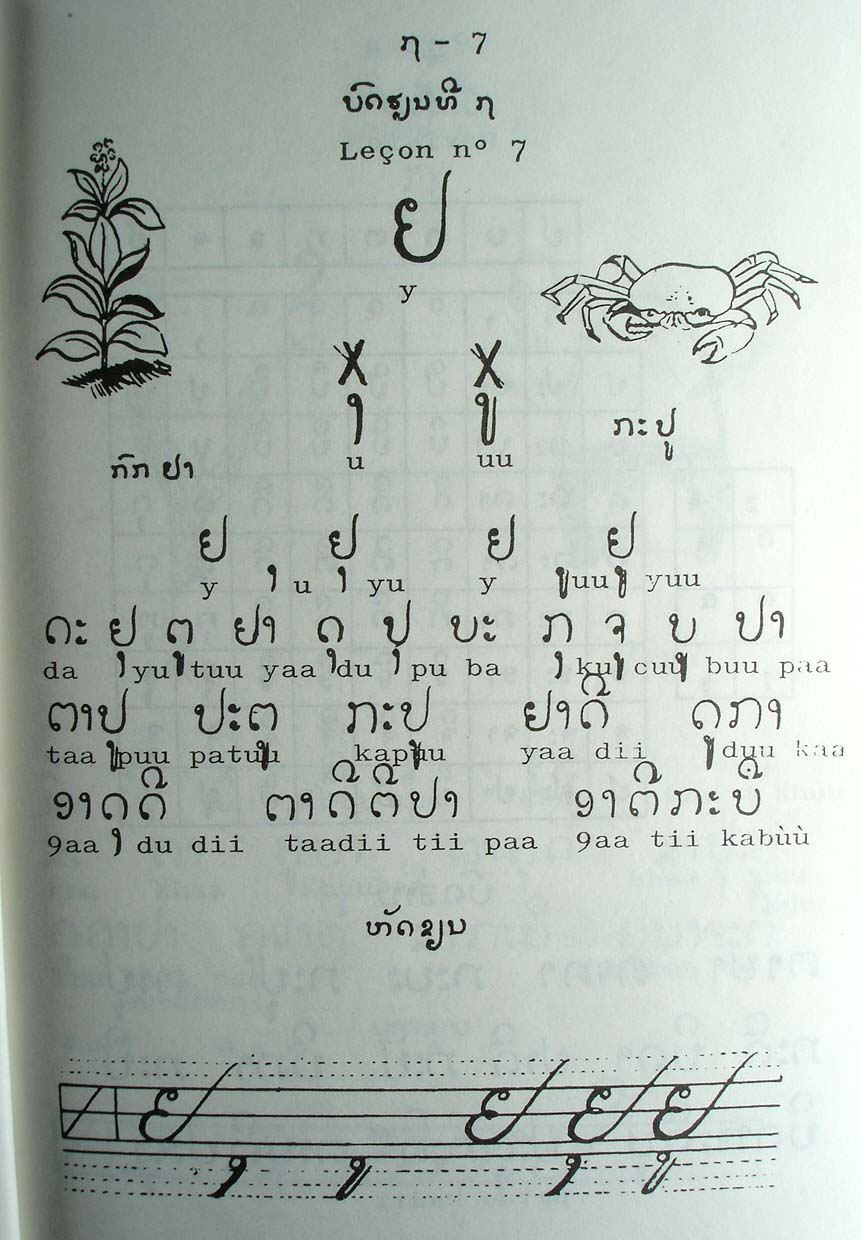 ໗ - 7
ບົດຮຽນທີ ໗
Leçon nº 7
ຢ
y
xຸ xູ
ກະປູ
u uu
ກົກ ຢາ
ຢ ຸ ຢຸ ຢ ູ ຢູ
y u yu y uu yuu
ດະ ຢຸ ຕູ ຢາ ດຸ ປຸ ບະ ກຸ ຈູ ບູ ປາ
da yu tuu yaa du pu ba ku cuu buu paa
ຕາປູ ປະຕູ ກະປູ ຢາດີ ດູກາ
taa puu patuu kapuu yaa dii duu kaa
ອາດຸດີ ຕາດີ ຕີປາ ອາຕີກະບື
9aa du dii taadii tii paa 9aa tii kabùù
ຫັດຂຽນ
ຢ ຢ ຢ ຢ
ຸ ູ ຸ ູ